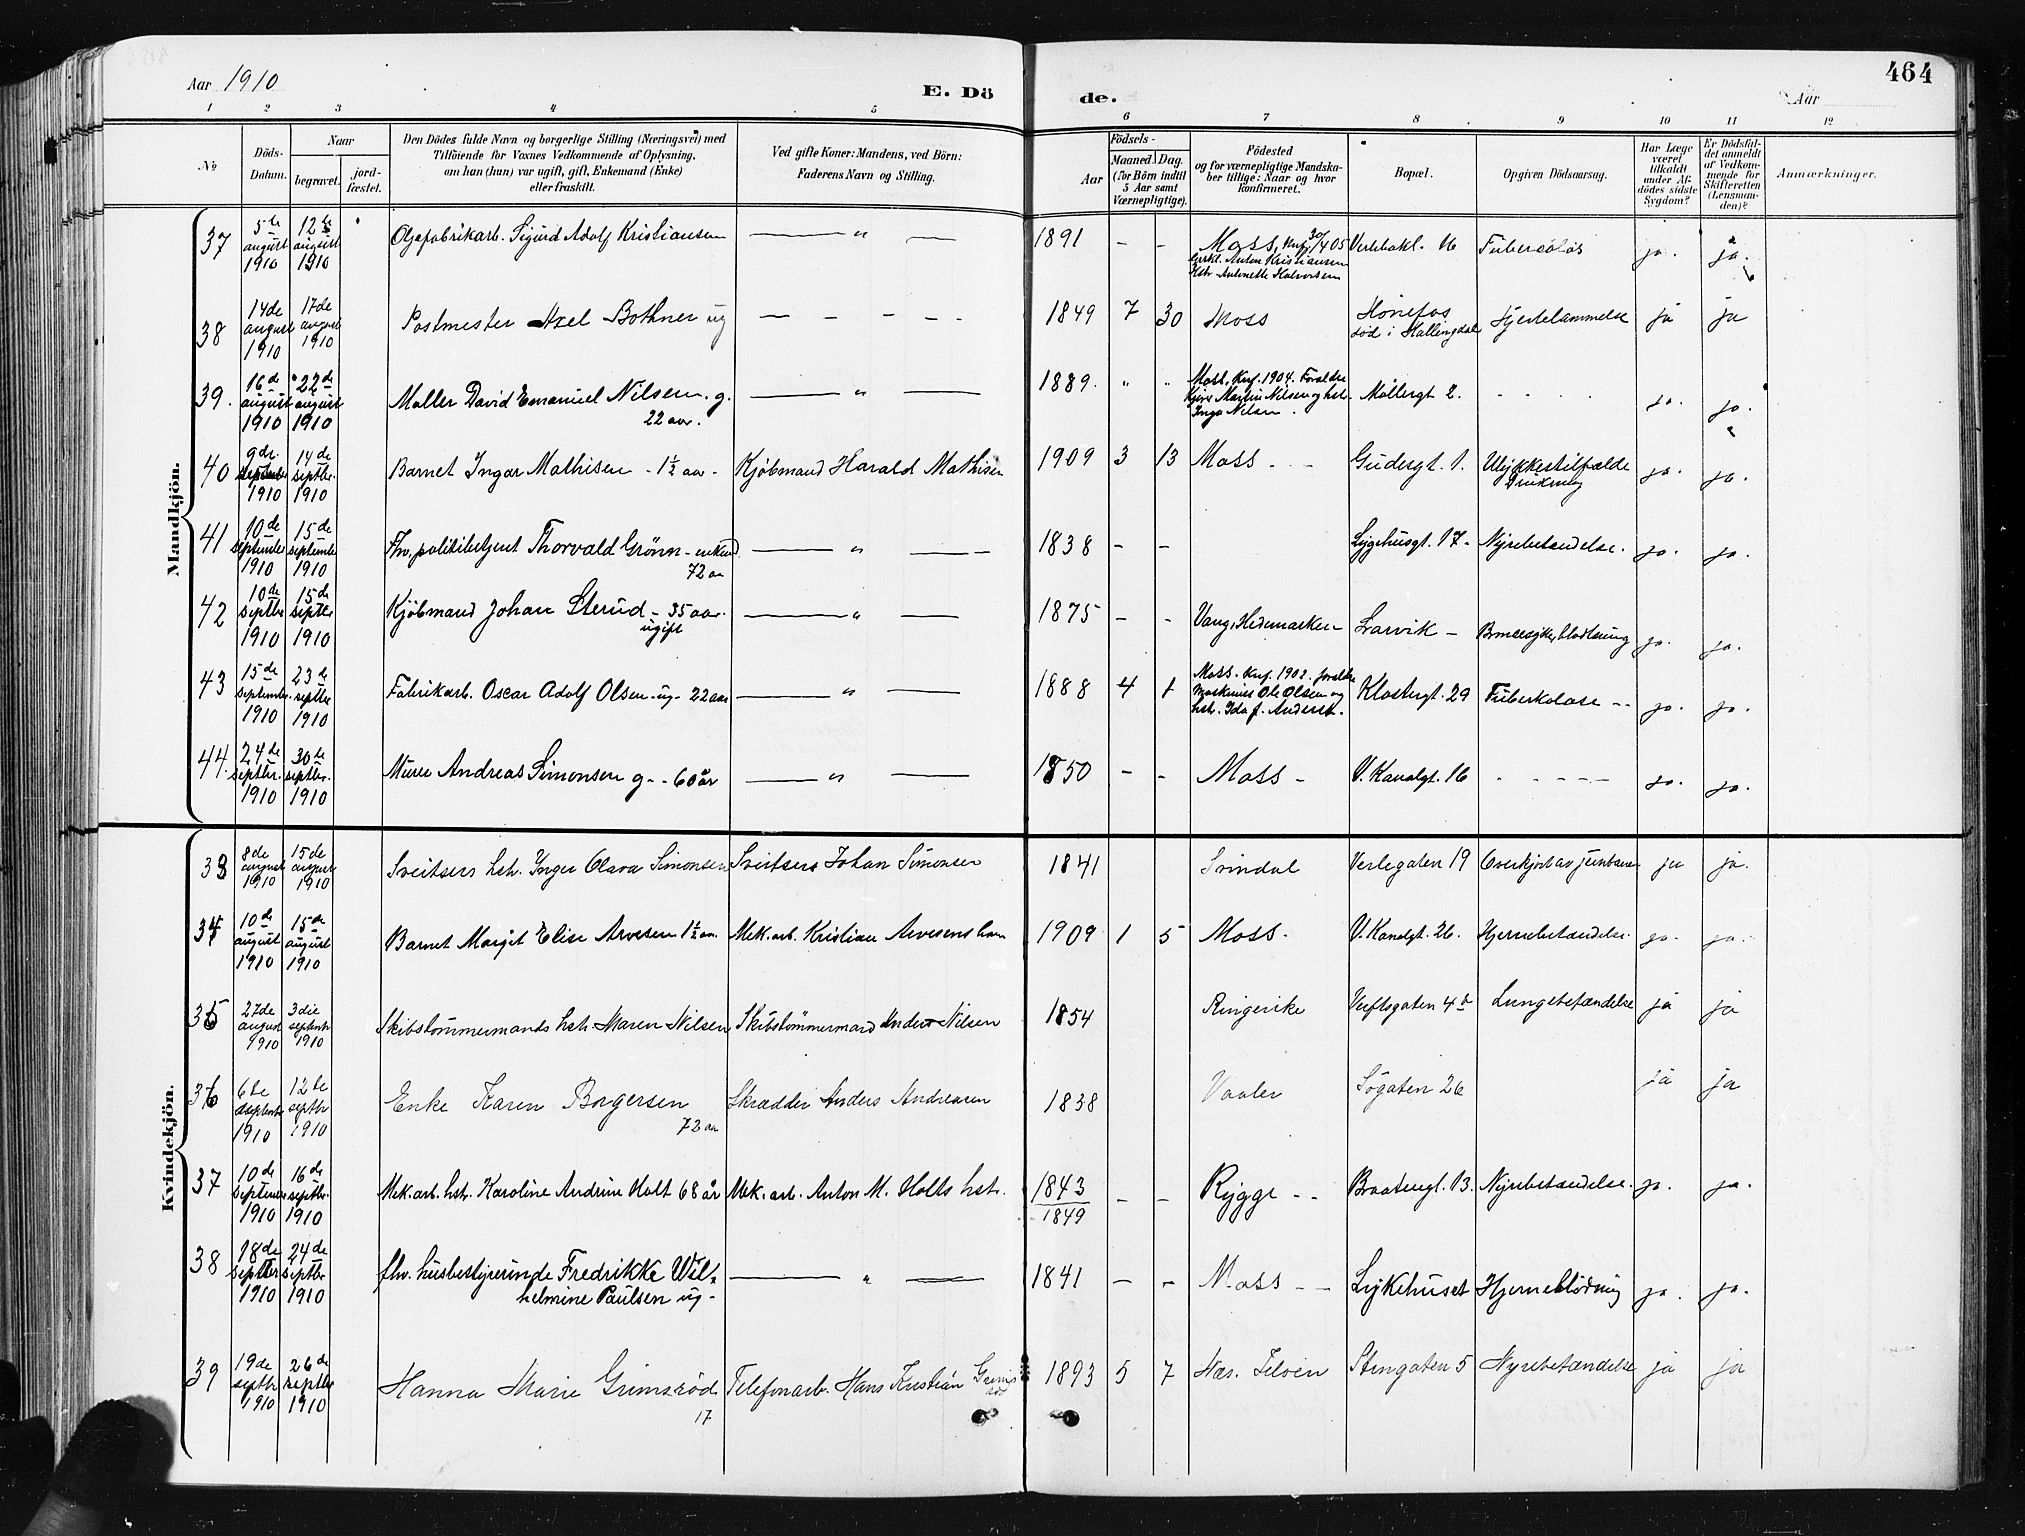 Aar 1910
E. Dö de.
Aar
464
1 2 3 4 5 6 7 8 9 10 11 12
№
Döds-Datum.
Naar
begravet.
jord-fæstet.
Den Dödes fulde Navn og borgerlige Stilling (Næringsvei) med
Tilföiende for Voxnes Vedkommende af Oplysning,
om han (hun) var ugift, gift, Enkemand (Enke)
eller fraskilt.
Ved gifte Koner: Mandens, ved Börn:
Faderens Navn og Stilling.
Födsels-
Aar
Maaned. Dag.
(for Börn indtil
5 Aar samt
Værnepligtige).
Födested
og for værnepligtige Mandska-
ber tillige: Naar og hvor
konfirmeret.
Bopæl.
Opgiven Dödsaarsag.
Har Læge
været
tilkaldt
under Af-
dödes sidste
Sygdom?
Er Dödsfal-
det anmeldt
af Vedkom-
mende for
Skifteretten
(Lensman-
den)?
Anmærkninger.
Mandkjön.
37 5te august 1910 12te august 1910 Oljefabrikarb. Sigurd Adolf Kristiansen — " — 1891 - - Moss, Knf. 30/4 05 Anton Kristiansen Antonette Halvorsen Verlebakk. 16 Tuberculos ja. ja.
38 14de august 1910 17de august 1910 Postmester Axel Bothner ug — — — — — 1849 7 30 Moss Hönefos död i Hallingdal Hjertelammelse ja ja
39. 16de august 1910 22de august 1910 Maller David Emanuel Nilsen. g. 22 aar. — " — 1889. " " Moss, Knf. 1904. Foreldre Martin Nilsen og hst. Inga Nilsen. Møllergt 2. - - - - ja. ja.
40 9de september 1910 14de septbr. 1910 Barnet Ingar Mathisen - 1½ aar - Kjöbmand Harald Mathisen 1909 3 13 Moss - - Gudesgt. 1. Ulykkestilfælde Drukning ja. ja.
41 10de september 1910 15de september 1910 Fhv. politibetjent Thorvald Grönn - enkem. 72 aar — " — 1838 - - Sygehusgt. 17 - Nyrebetændelse. ja. ja.
42 10de septbr 1910 15de septbr 1910 Kjöbmand Johan Sterud - 35 aar. ugift — " — 1875 - - Vang, Hedemarken Larvik - blodtæring ja. ja.
43 15de september 1910 23de septbr 1910 Fabrikarb. Oscar Adolf Olsen - ug - 22 aar — " — 1888 4 1 Moss. Knf. 1902. foreldre Maskinist Ole Olsen og hst. Ida f. Anderst. Klostergt. 29 Tuberkolose -- ja. ja.
44. 24de septbr. 1910 30te septbr. 1910 Murer Andreas Simonsen g - - 60 år — " — 1850 - - Moss - V. Kanalgt. 16 - - - - - ja. ja.
Kvindekjön.
33 8de august 1910 15de august 1910 Sveitsers hst. Inger Olava Simonsen Sveitsers Johan Simonsen 1841 Svindal Verlegaten 19 Overkjört av jernbane ja ja.
34 10de august 1910 15de august 1910 Barnet Margit Elise Arvesen 1½ aar Mek. arb. Kristian Arvesens barn 1909 1 5 Moss. V. Kanalgt. 26. Hjernebetændelse. ja. ja.
35 27de august 1910 3die septembr 1910 Skibstömmermands hst. Maren Nilsen Skibstömmermand Anders Nilsen 1854 Ringerike Verftsgaten 4 Lungebetændelse ja ja
36 6te september 1910 12te septbr 1910 Enke Karen Borgersen 72 aar Skrædder Anders Andreasen 1838 Vaaler Sögaten 26 ja ja
37 10de september 1910 16de septbr. 1910 Mek. arb. hst. Karoline Andrine Holt 68 år Mek. arb. Anton M. Holts hst. 1843 1849 - - Rygge - - Braatengt. 13. Nyrebetændelse. ja. ja.
38 18de septbr 1910 24de septbr 1910 fhv. husbestyrerinde Fredrikke Wil- helmine Paulsen ug - — " — 1841 - - Moss - - Sykehuset Hjerneblödning ja. ja.
39 19de septbr 1910 26de septbr 1910 Hanna Marie Grimsröd 17 Telefonarb. Hans Kristian Grimsröd 1893 5 7 Næs. Jelöen Stengaten 5 Nyrebetændelse ja ja